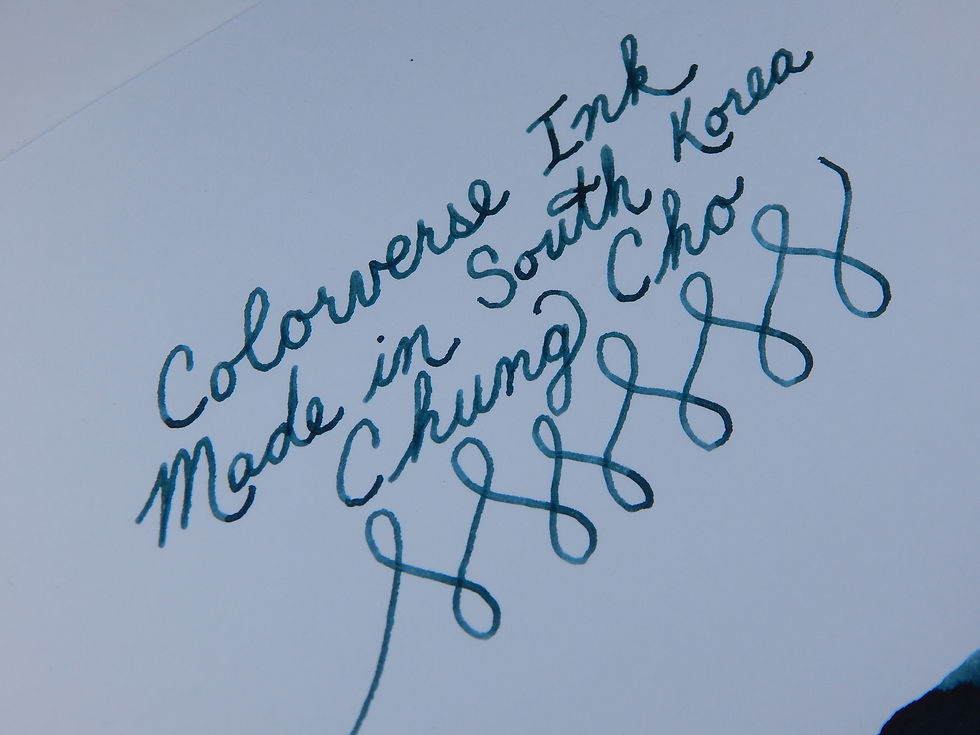 Colorverse Ink
Made in South Korea
Chung Cho